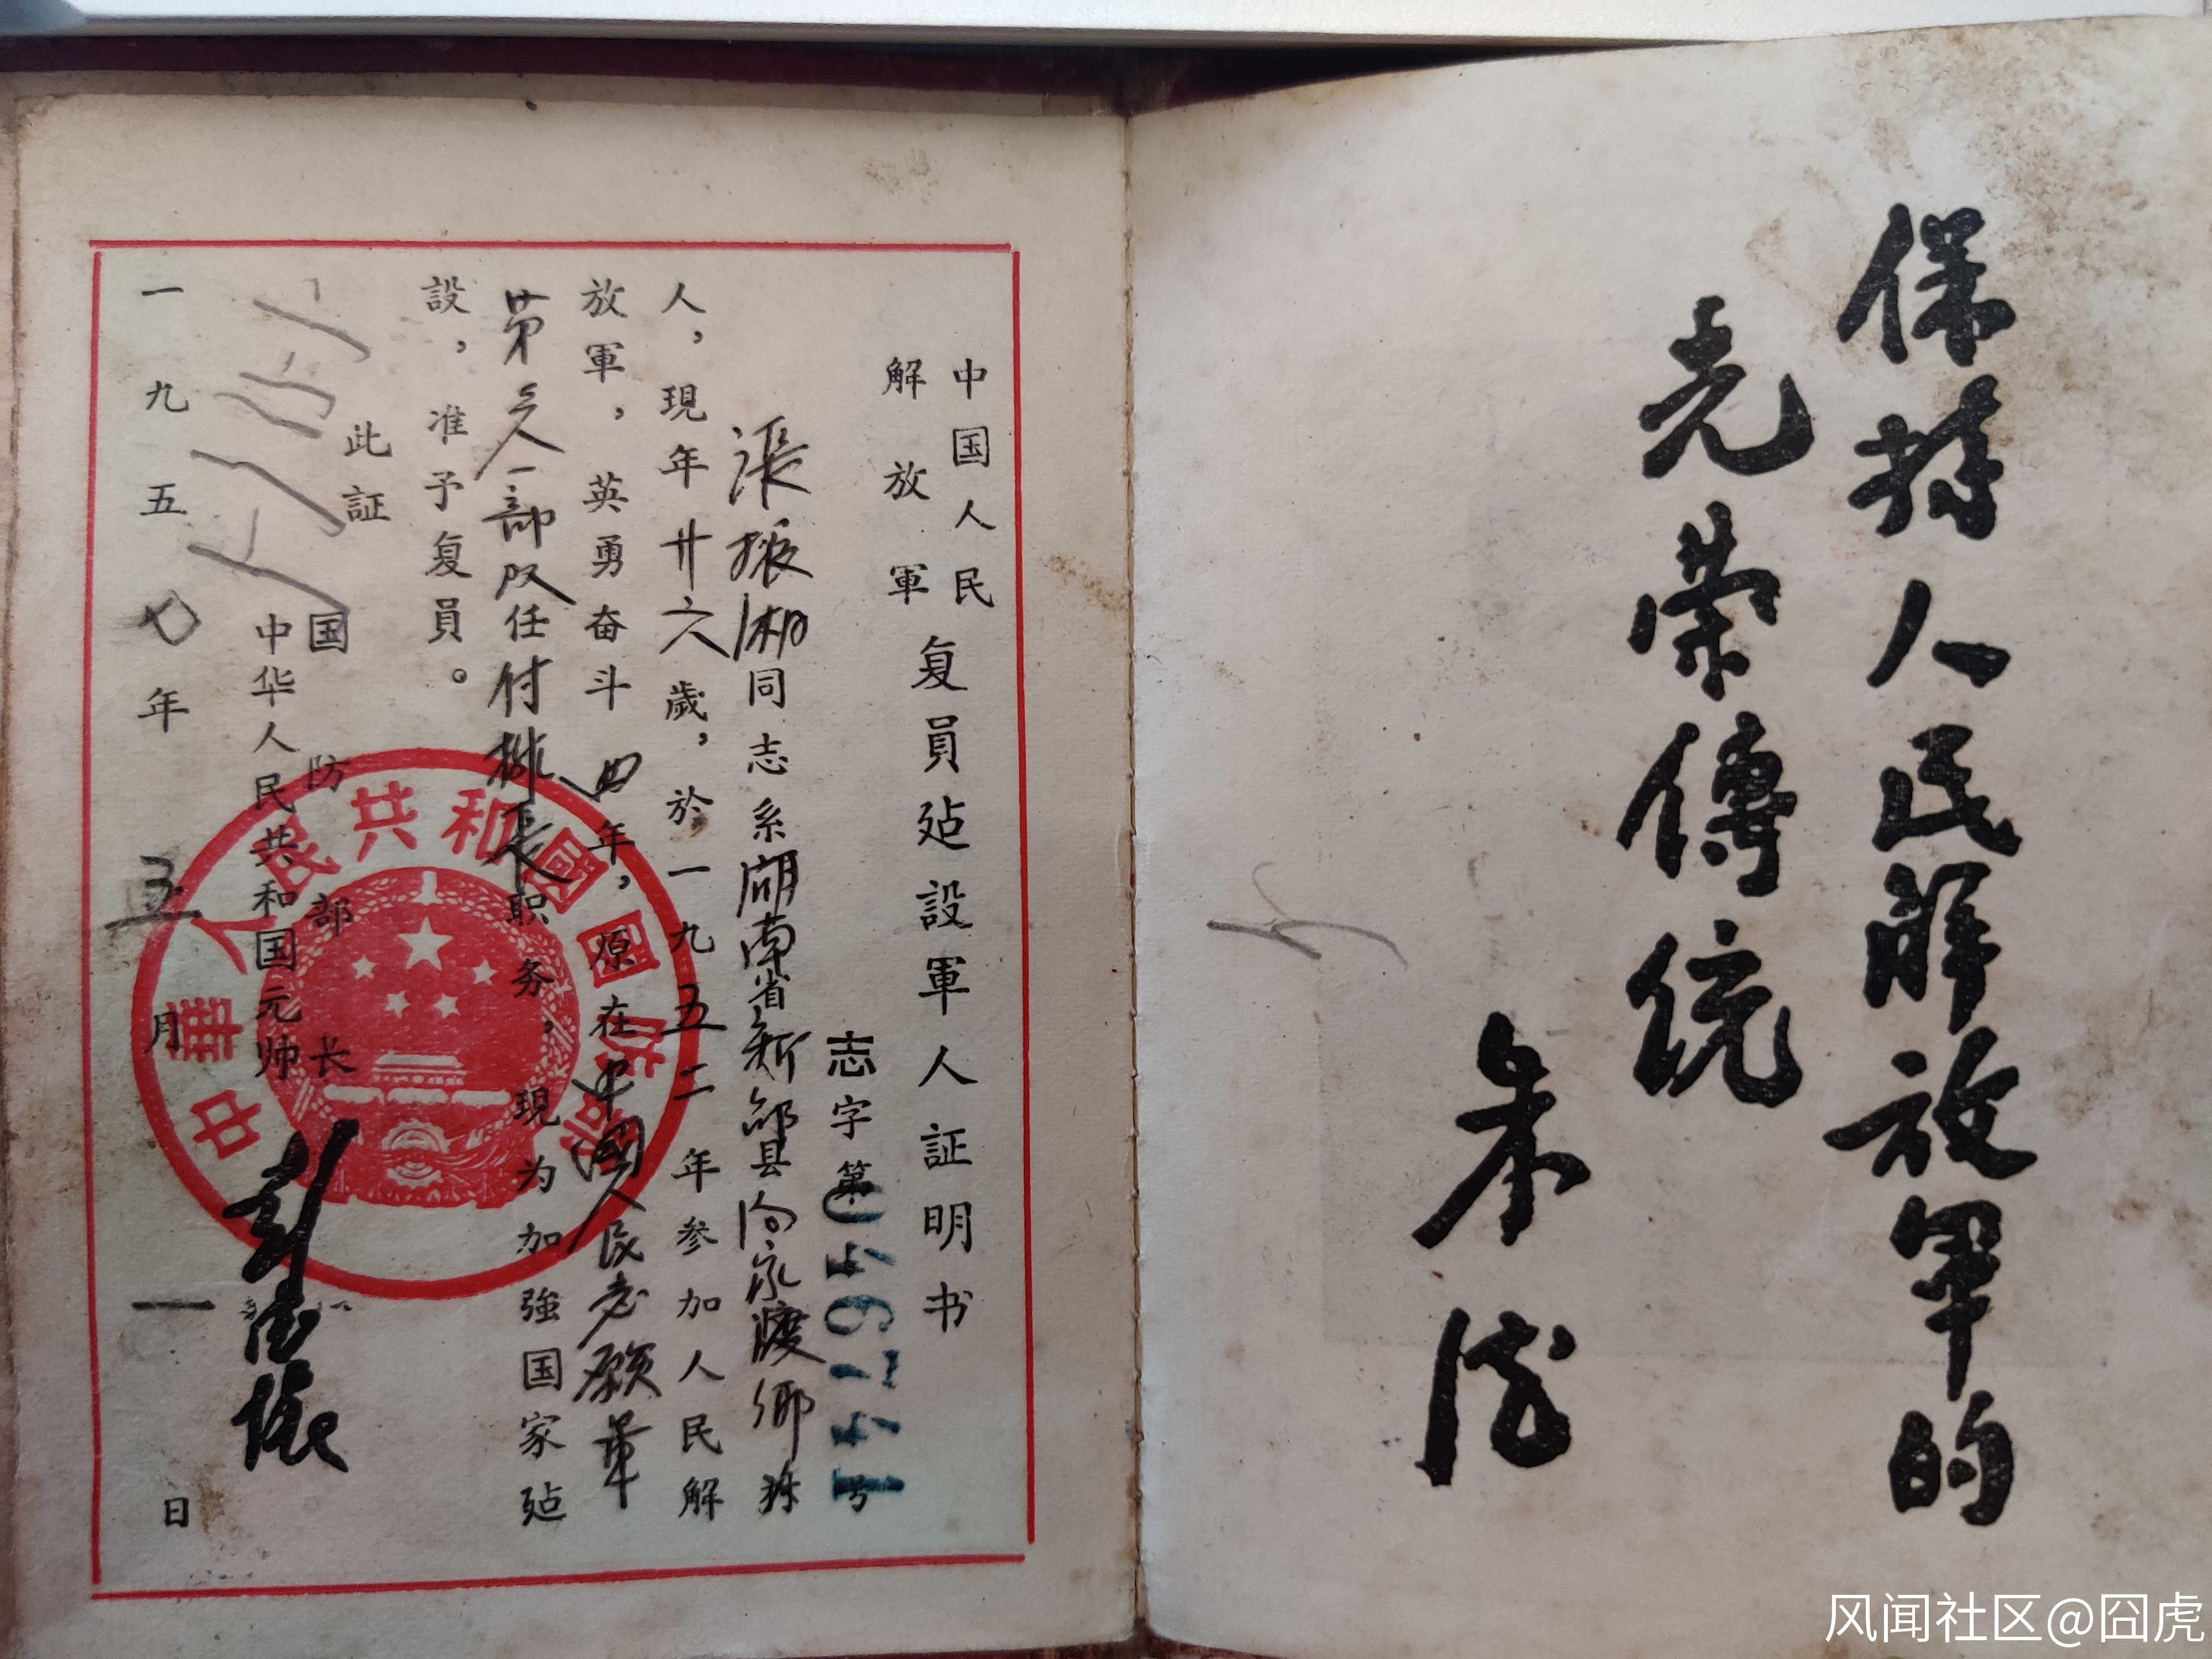 保持人民解放軍的
光荣傳統
朱德
中国人民
解放軍
复員建設軍人証明书
志字第号
張振湘同志系湖南省新邵县渡鄉
人，現年廿六歲，於一九五二年参加人民解
放軍，英勇奋斗四年，原在中國人民志願軍
第一部队任付排長职务，現为加強国家建
設，准予复員。
此証
国防部长
中华人民共和国元帅
彭德怀
一九五七年月一日
中華人民共和國國防部
风闻社区@囧虎